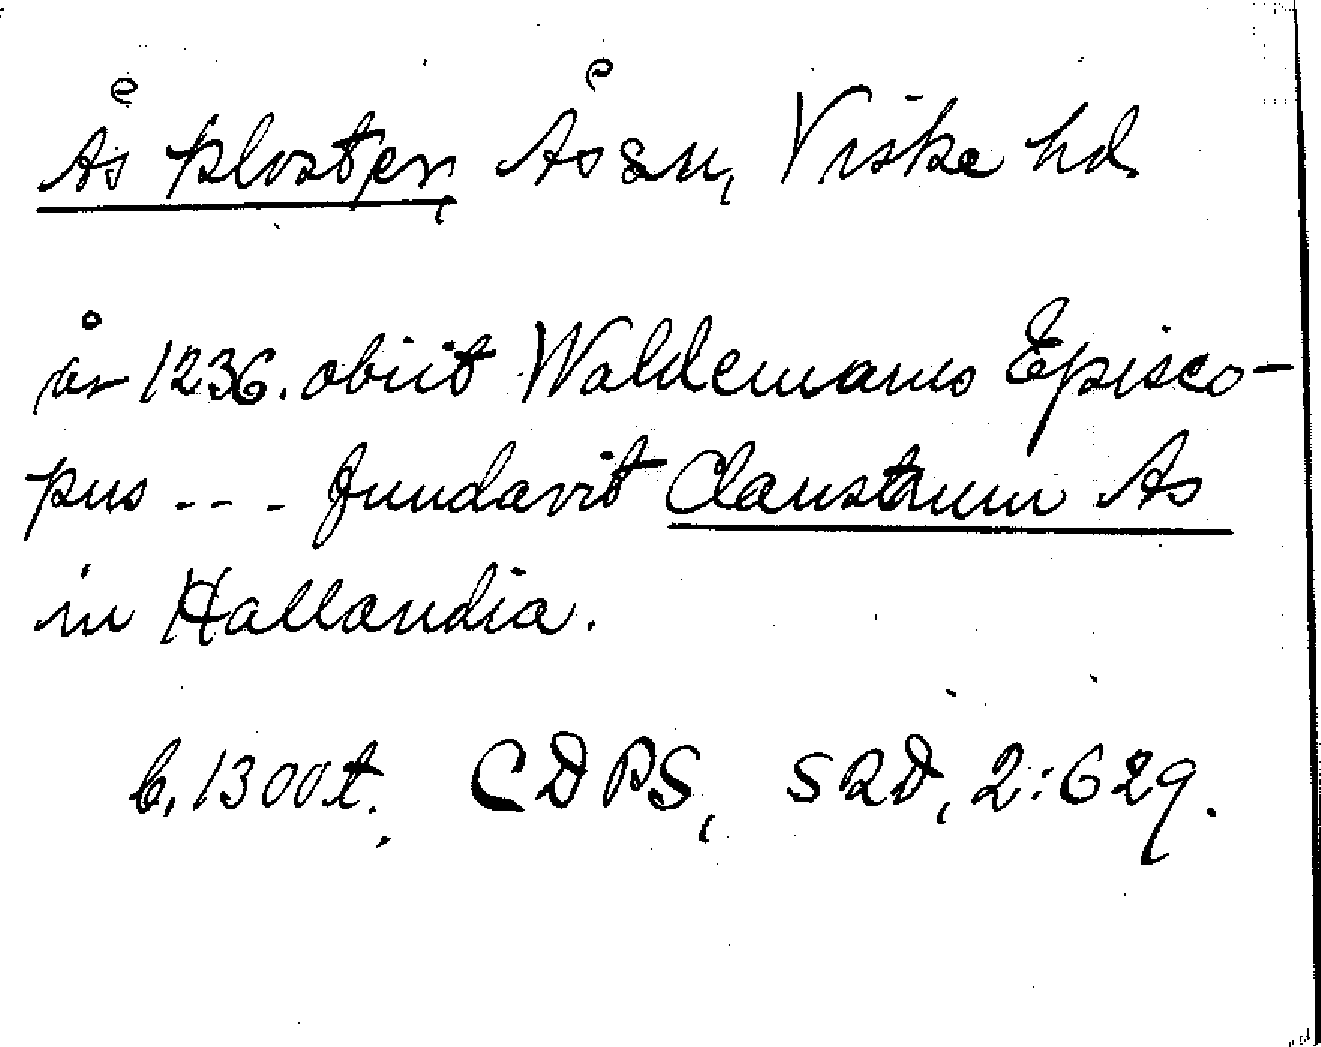 Ås kloster, Ås sn, Viske hd
år 1236. obiit Waldemarus Episco-
pus --- fundavit Claustrum As
in Hallandia.
b. 1300t., CDPS, SRD, 2:629.